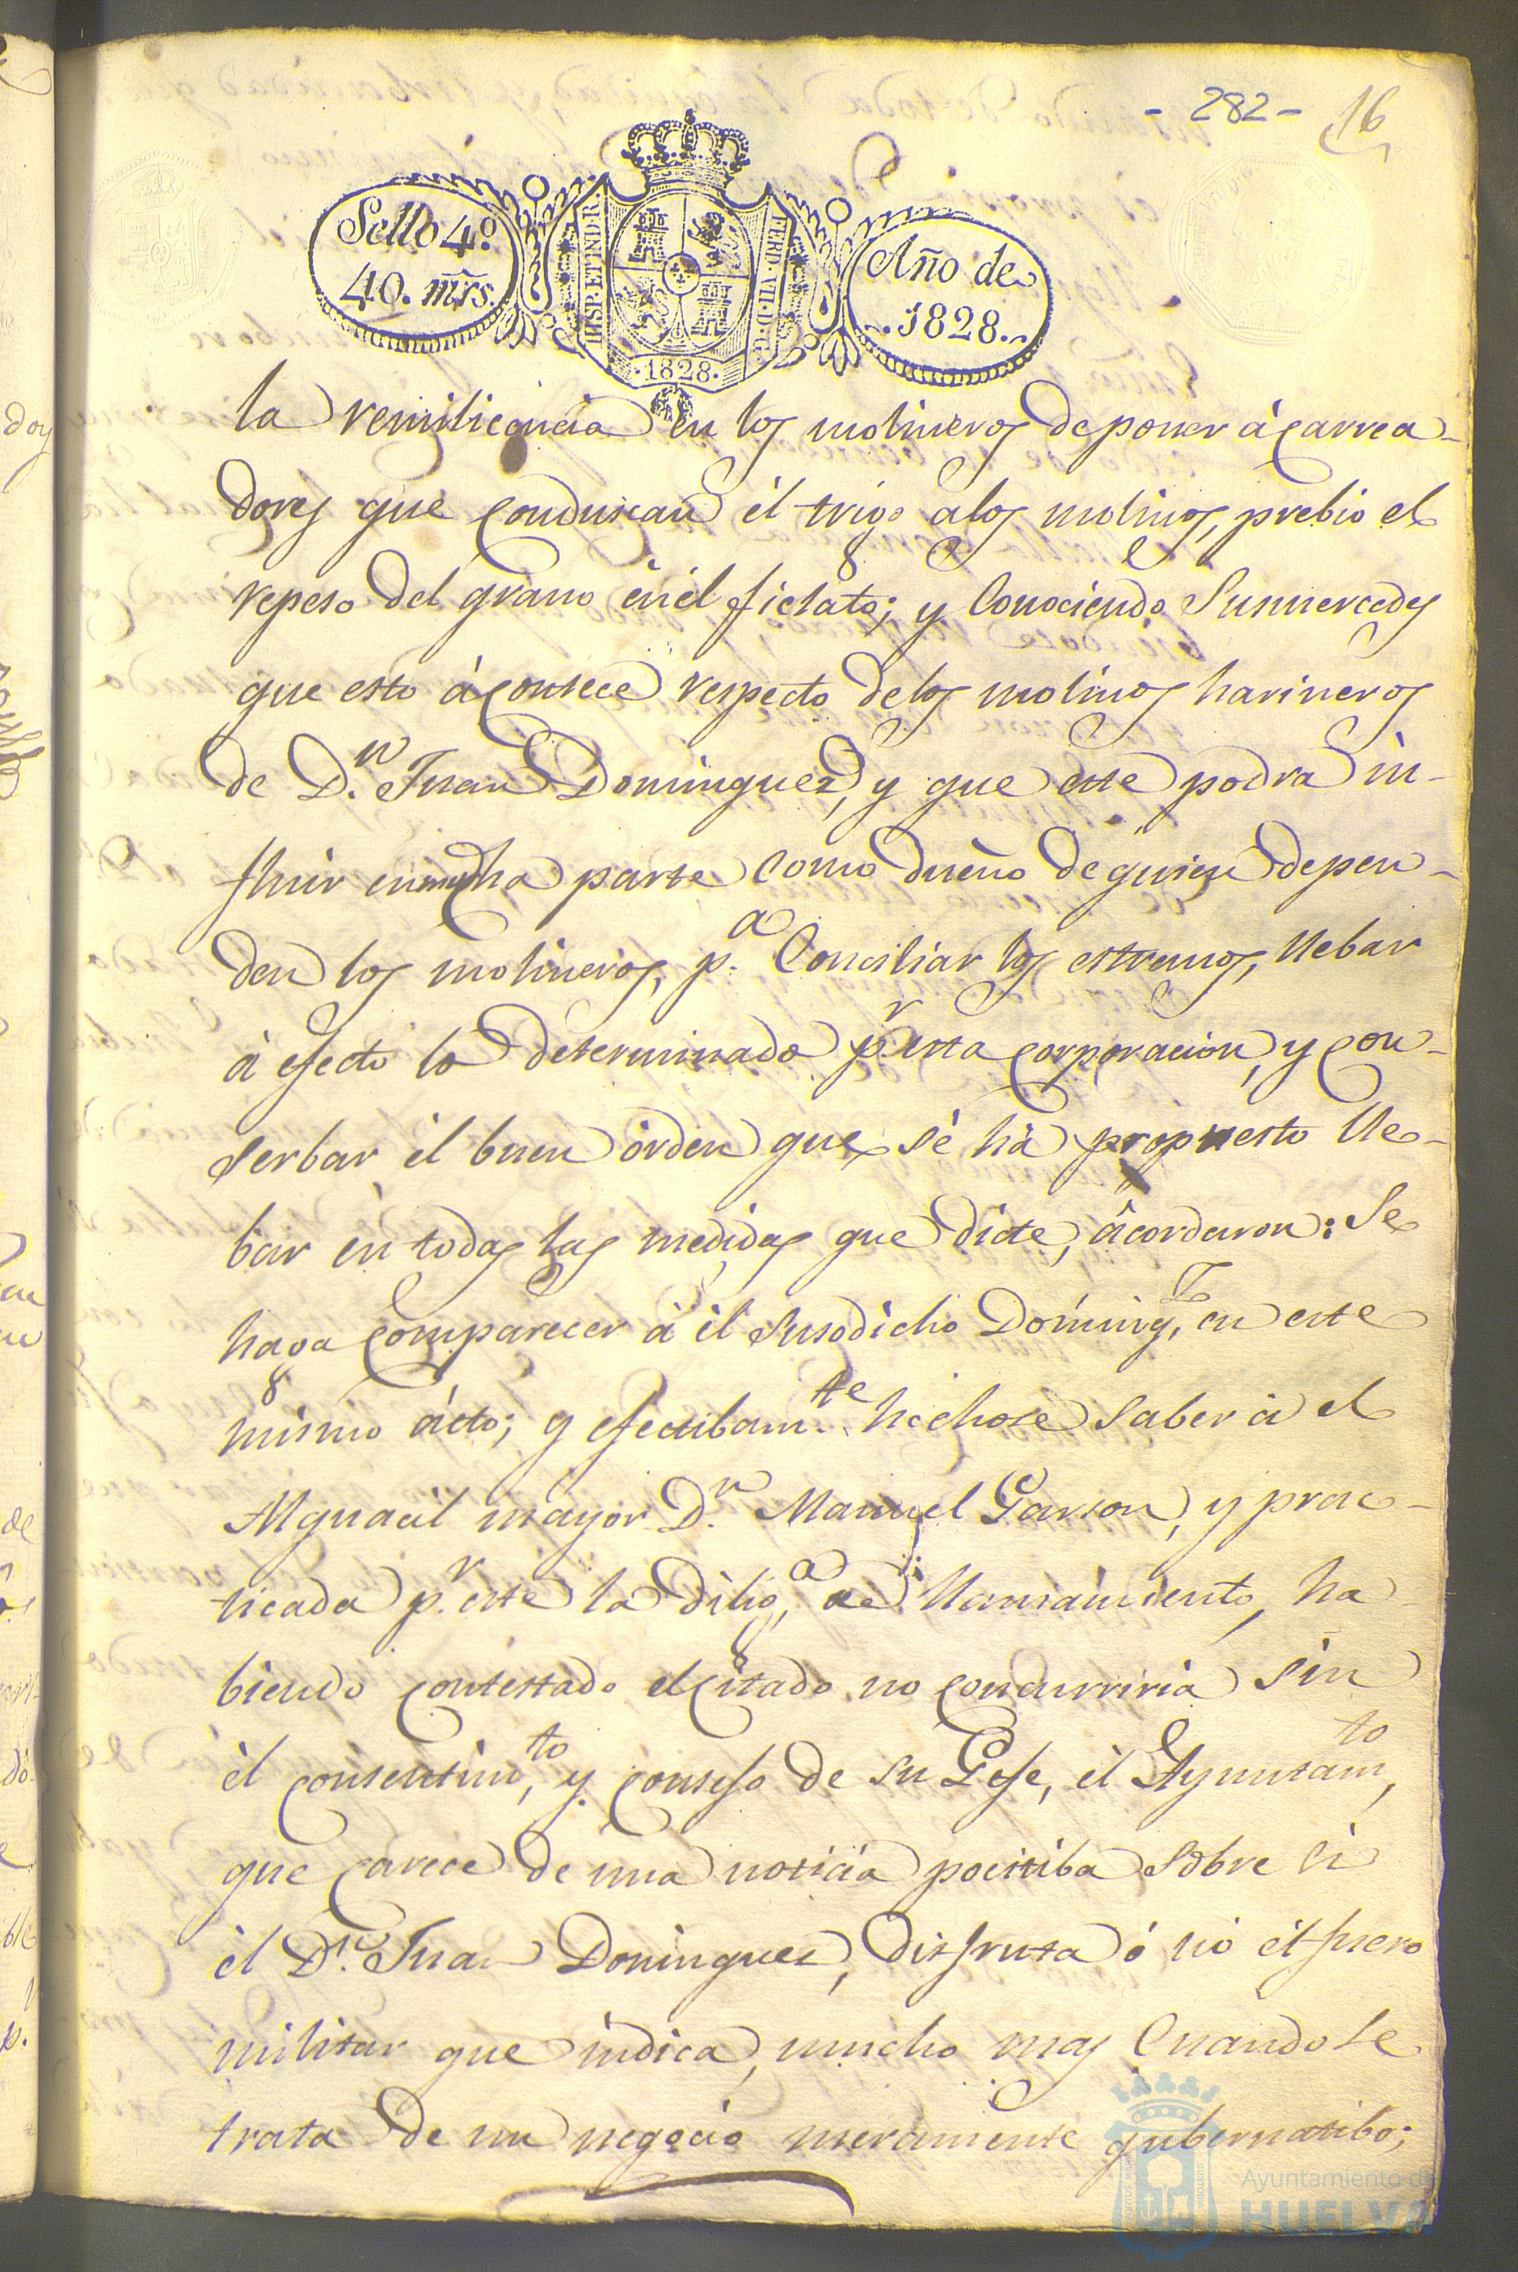 - 282 - 16
Sello 4.º
40. mrs.
HISP. ET IND. R.
FERD. VII. D. G.
·1828·
Año de
1828.
la remilicencia en los molineros de poner ácarrea-
dores que conduscan él trigo alos molinos, prebio el
repeso del grano én él fielato; y Conociendo Sus mercedes
que esto ácontece respecto delos molinos harineros
de D.n Juan Dominguez, y que este podra in-
fluir en mucha parte como dueño de quien depen-
den los molineros, p.a Conciliar los estremos, llebar
á efecto lo determinado p.r esta corporacion, y con-
serbar él buen órden que sé há propuesto lle-
bar én todas las medidas que dicte, ácordaron: Se
haga comparecer á él susodicho Doming.z, en este
mismo ácto; y efectibam.te hichose saber á el
Alguacil mayor D.n Manuel Garson, y prac-
ticada p.r este la dilig.a de llamamiento, ha
biendo contestado el citado no concurriria sin
él consentim.to, y consejo de su Gefe, él Ayuntam.to,
que carece de una noticia pocitiba sobre si
él D.n Juan Dominguez, disfruta ó nó él fuero
militar que índica, mucho mas Cuando se
trata de un negocio meramente gubernatibo;
Ayuntamiento de
HUELVA